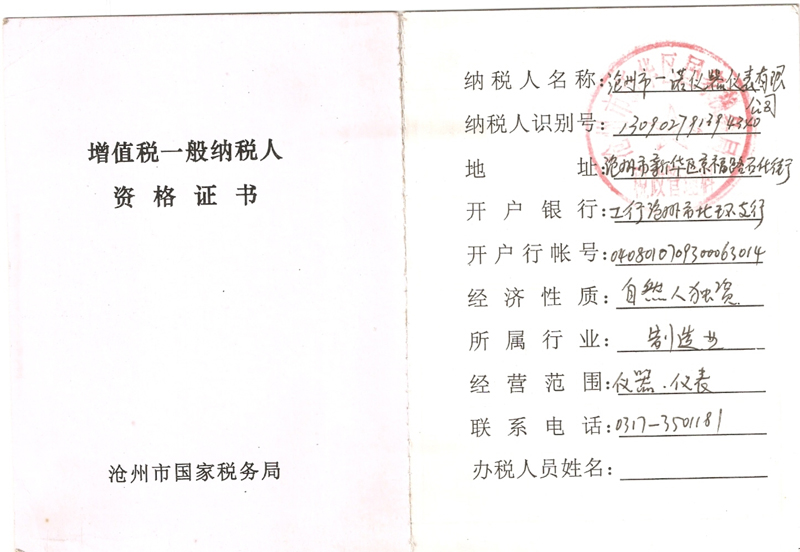 增值税一般纳税人
资格证书
沧州市国家税务局
纳税人名称：沧州市一诺仪器仪表有限
公司
纳税人识别号：130902791394340
地址：沧州市新华区京福路石化街
开户银行：工行沧州市北环支行
开户行帐号：0408010709300063014
经济性质：自然人独资
所属行业：制造业
经营范围：仪器、仪表
联系电话：0317-3501181
办税人员姓名：